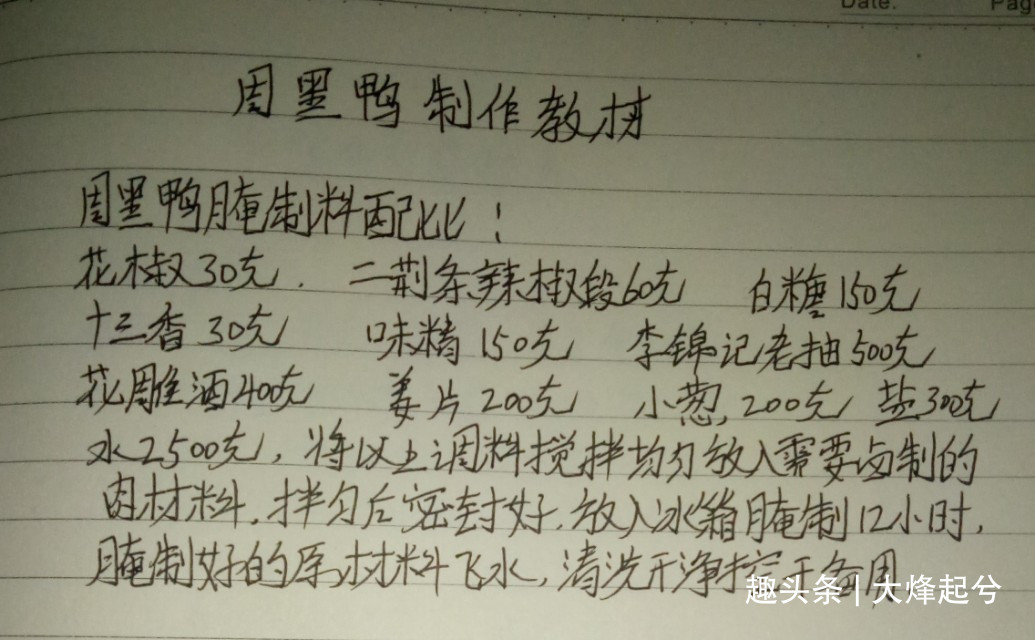 Date.
Pag
周黑鸭制作教材
周黑鸭腌制料配比：
花椒30克. 二荆条辣椒段60克 白糖150克
十三香30克 味精150克 李锦记老抽500克
花雕酒400克 姜片200克 小葱,200克 盐300克
水2500克，将以上调料搅拌均匀放入需要卤制的
肉材料，拌匀后密封好，放入冰箱腌制12小时，
腌制好的原材料飞水，清洗干净控干备用
趣头条 | 大烽起兮